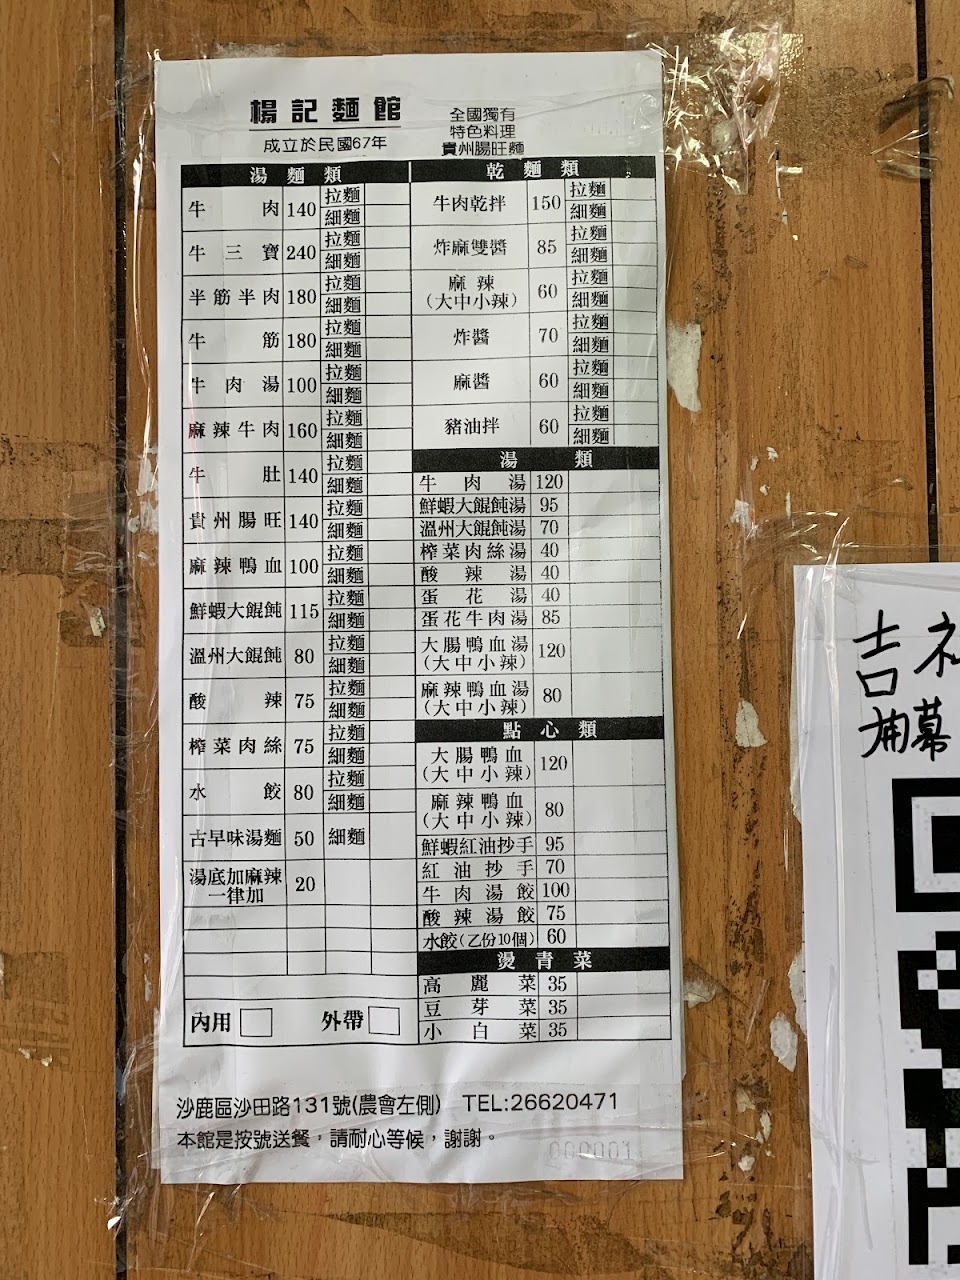 楊記麵館
成立於民國67年
全國獨有
特色料理
貴州腸旺麵
湯麵類
牛肉 140 拉麵 細麵
牛三寶 240 拉麵 細麵
半筋半肉 180 拉麵 細麵
牛筋 180 拉麵 細麵
牛肉湯 100 拉麵 細麵
麻辣牛肉 160 拉麵 細麵
牛肚 140 拉麵 細麵
貴州腸旺 140 拉麵 細麵
麻辣鴨血 100 拉麵 細麵
鮮蝦大餛飩 115 拉麵 細麵
溫州大餛飩 80 拉麵 細麵
酸辣 75 拉麵 細麵
榨菜肉絲 75 拉麵 細麵
水餃 80 拉麵 細麵
古早味湯麵 50 細麵
湯底加麻辣
一律加 20
內用 外帶
乾麵類
牛肉乾拌 150 拉麵 細麵
炸麻雙醬 85 拉麵 細麵
麻辣
(大中小辣) 60 拉麵 細麵
炸醬 70 拉麵 細麵
麻醬 60 拉麵 細麵
豬油拌 60 拉麵 細麵
湯類
牛肉湯 120
鮮蝦大餛飩湯 95
溫州大餛飩湯 70
榨菜肉絲湯 40
酸辣湯 40
蛋花湯 40
蛋花牛肉湯 85
大腸鴨血湯
(大中小辣) 120
麻辣鴨血湯
(大中小辣) 80
點心類
大腸鴨血
(大中小辣) 120
麻辣鴨血
(大中小辣) 80
鮮蝦紅油抄手 95
紅油抄手 70
牛肉湯餃 100
酸辣湯餃 75
水餃(乙份10個) 60
燙青菜
高麗菜 35
豆芽菜 35
小白菜 35
沙鹿區沙田路131號(農會左側) TEL:26620471
本館是按號送餐，請耐心等候，謝謝。
000001
吉